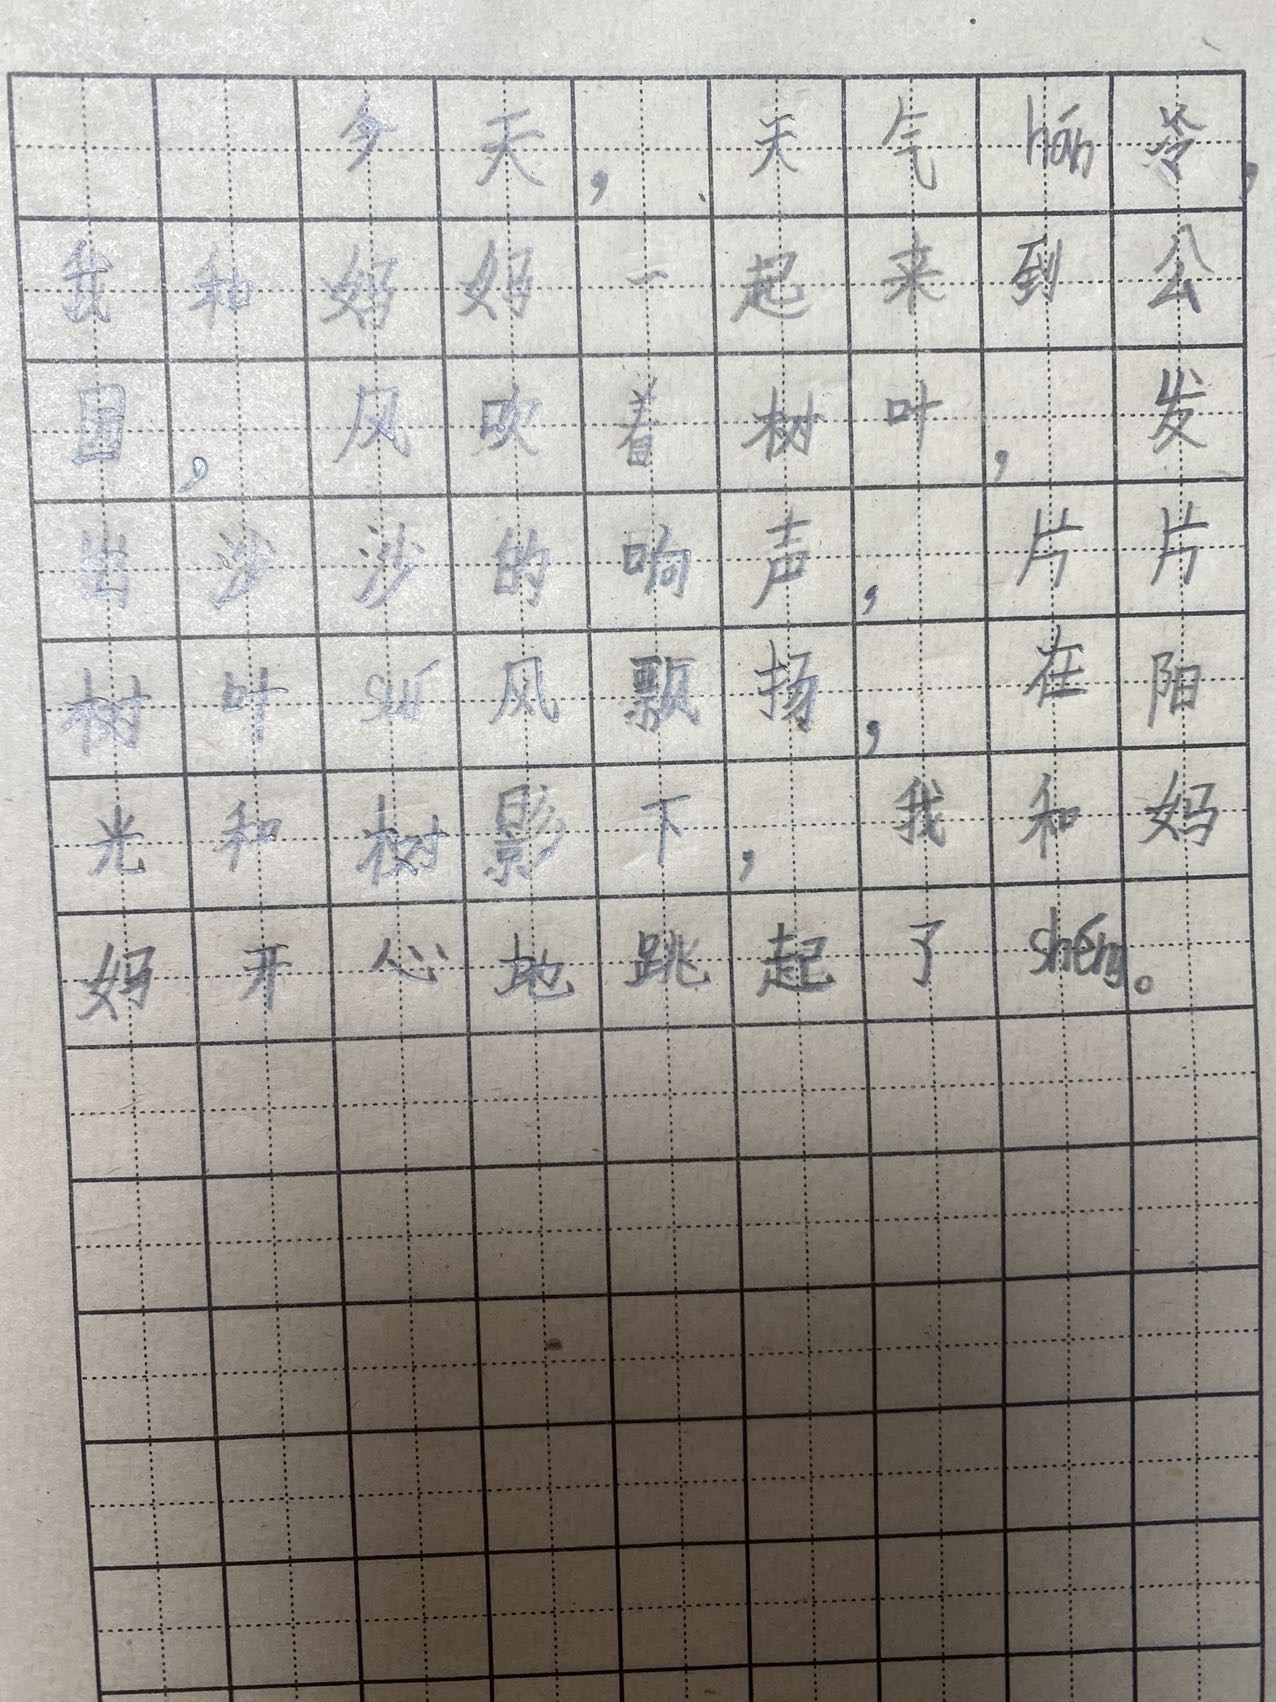 今天，天气hán冷，
我和妈妈一起来到公
园，风吹着树叶，发
出沙沙的响声，片片
树叶suí风飘扬，在阳
光和树影下，我和妈
妈开心地跳起了shéng。